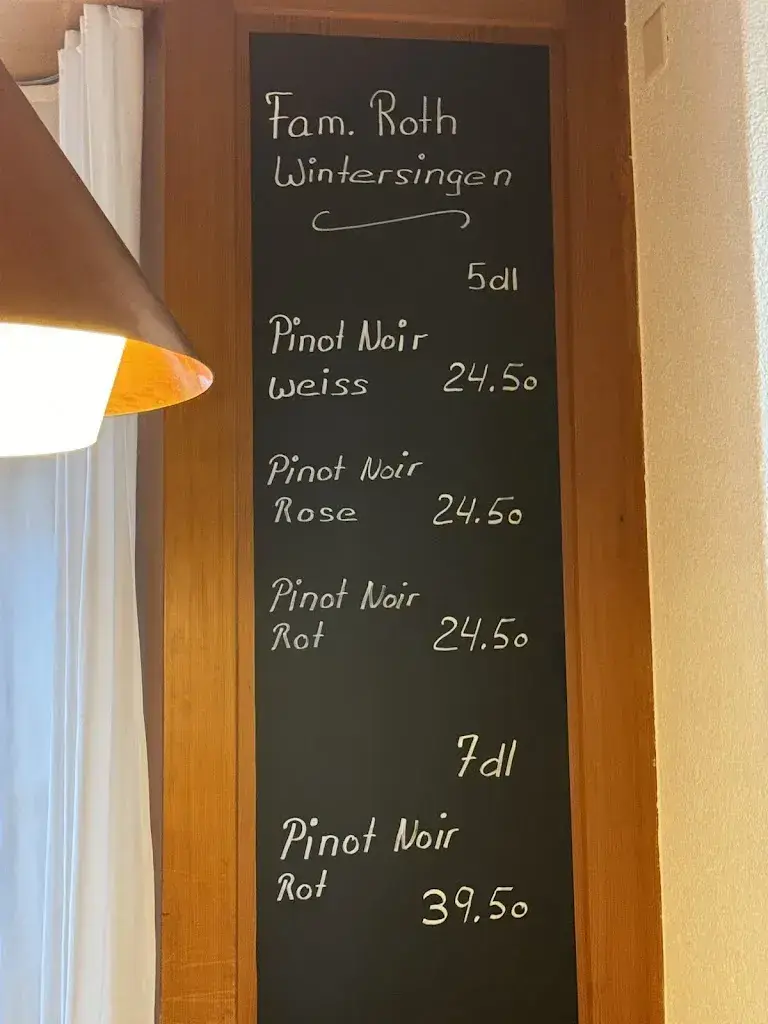 Fam. Roth
Wintersingen
5dl
Pinot Noir
weiss 24.50
Pinot Noir
Rose 24.50
Pinot Noir
Rot 24.50
7dl
Pinot Noir
Rot 39.50